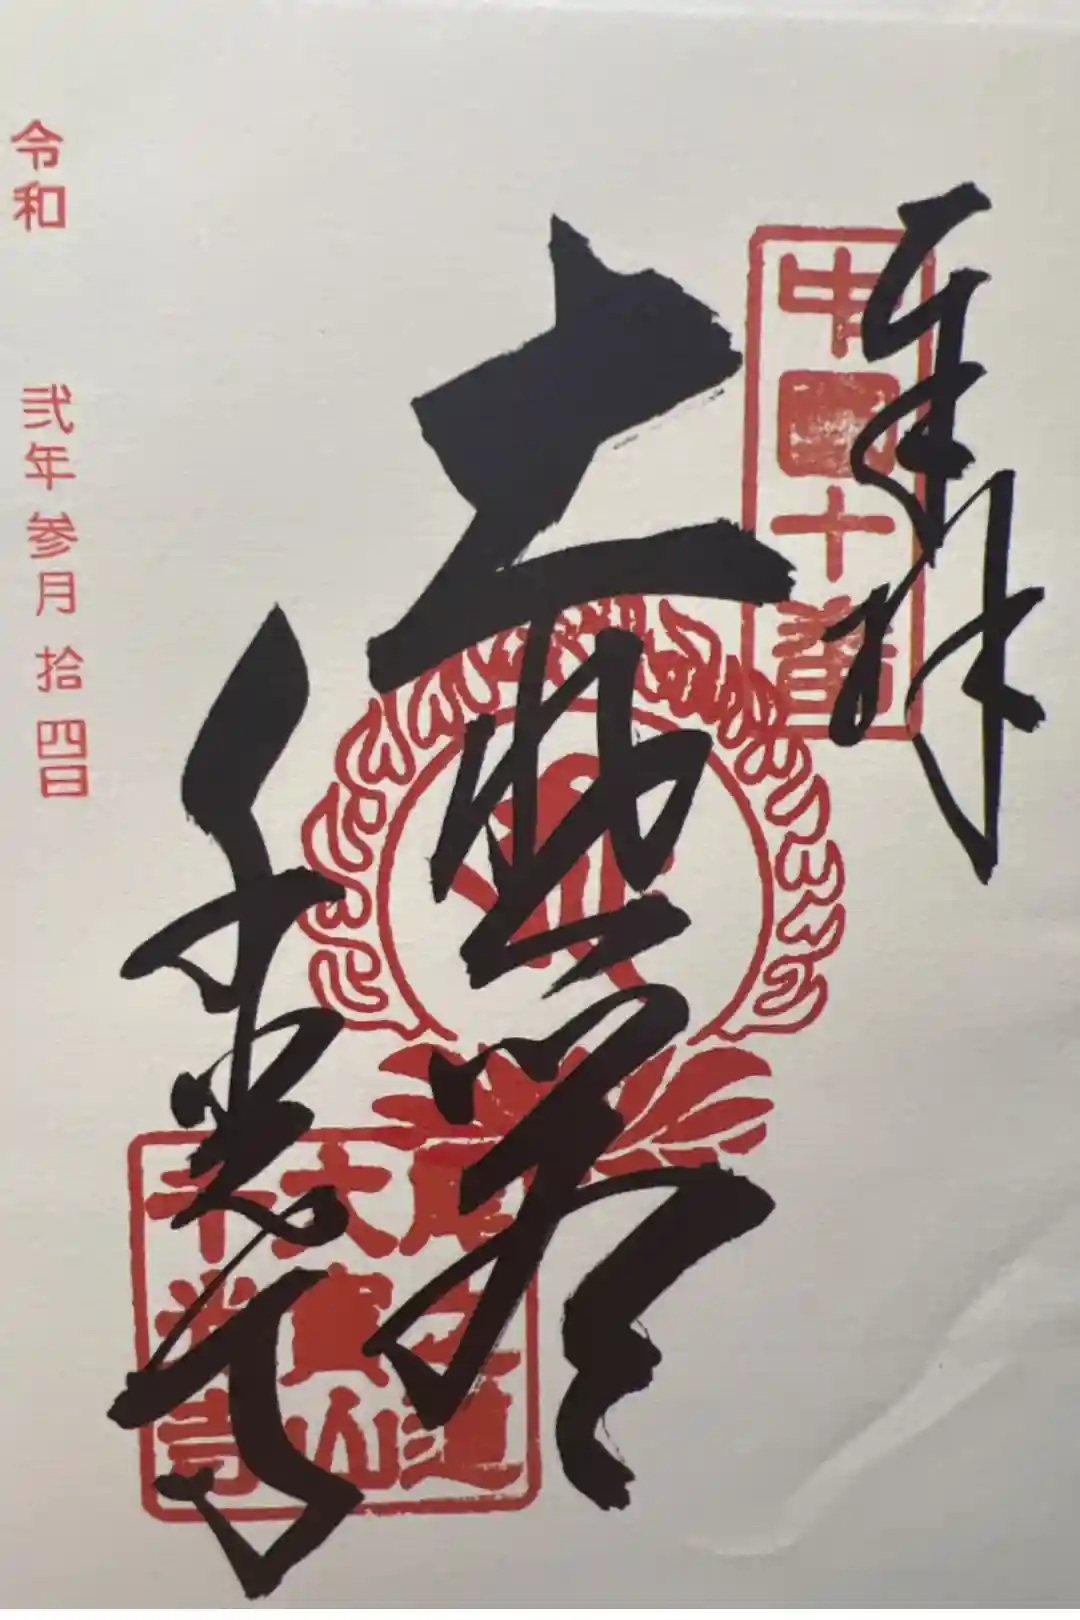 奉拝
中國十番
千光寺
尾之道
大寶山
千光寺
令和 弐年 参月 拾四日